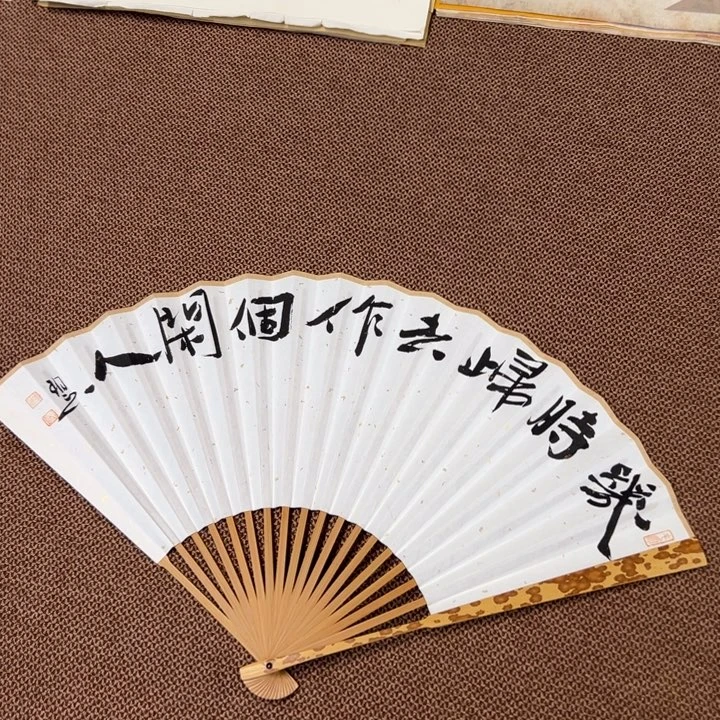 幾時歸去作個閑人